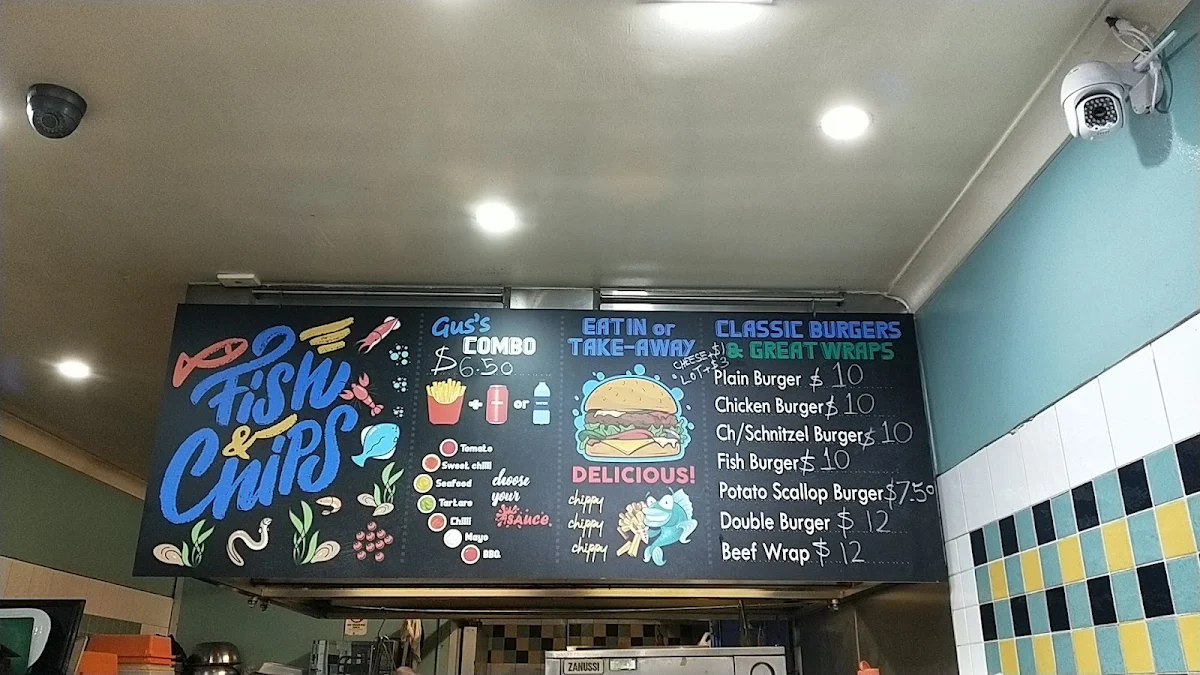 Fish
&
Chips
Gus's
COMBO
$6.50
+ or
Tomato
Sweet chilli
Seafood
Tartare
Chilli
Mayo
BBQ.
choose
your
SAUCE.
EAT IN or
TAKE-AWAY
CHEESE+$1
LOT+$3
DELICIOUS!
chippy
chippy
chippy
CLASSIC BURGERS
& GREAT WRAPS
Plain Burger $ 10
Chicken Burger $ 10
Ch/Schnitzel Burger $ 10
Fish Burger $ 10
Potato Scallop Burger $7.50
Double Burger $ 12
Beef Wrap $ 12
ZANUSSI